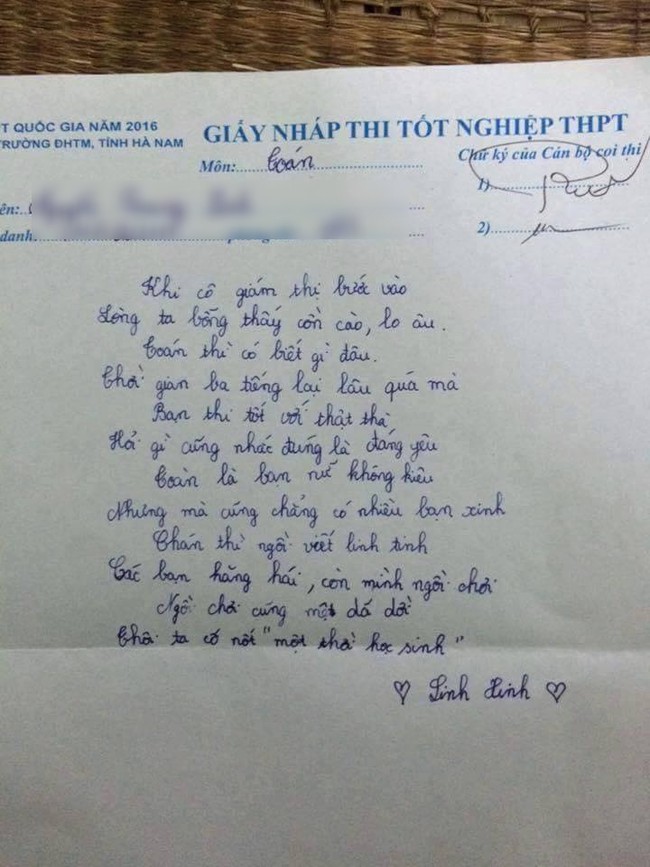 T QUỐC GIA NĂM 2016
TRƯỜNG ĐHTM, TỈNH HÀ NAM
GIẤY NHÁP THI TỐT NGHIỆP THPT
Môn: Toán
Chữ ký của Cán bộ coi thi
1)
ên:
2)
danh
Khi cô giám thị bước vào
Lòng ta bỗng thấy cồn cào, lo âu.
Toán thì có biết gì đâu.
Thời gian ba tiếng lại lâu quá mà
Bạn thi tốt với thật thà
Hỏi gì cũng nhắc đúng là đáng yêu
Toàn là bạn nữ không kiêu
Nhưng mà cũng chẳng có nhiều bạn xinh
Chán thì ngồi viết linh tinh
Các bạn hăng hái, còn mình ngồi chơi
Ngồi chơi cũng một dá dời
Thôi ta cố nốt "một thời học sinh"
♡ Linh Linh ♡